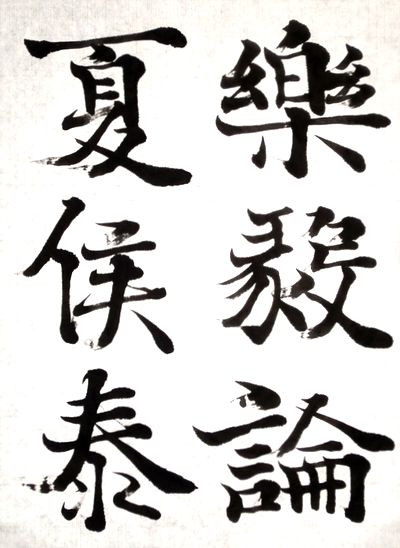 樂毅論
夏侯泰